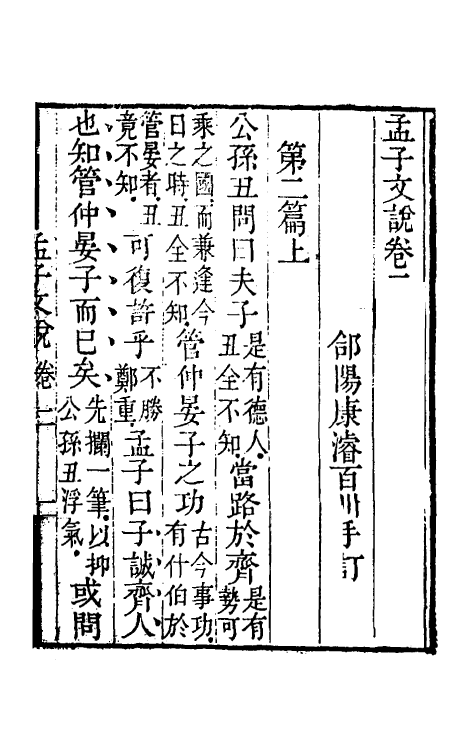 孟子文說卷一
郃陽康濬百川手訂
第二篇上
公孫丑問曰夫子是有德人丑全不知當路於齊是有勢可
乘之國而兼逢今日之時丑全不知管仲晏子之功古今事功有什伯於
管晏者丑竟不知可復許乎不勝鄭重孟子曰子誠齊人
也知管仲晏子而已矣先攔一筆以抑公孫丑浮氣或問
孟子文說 卷一 一